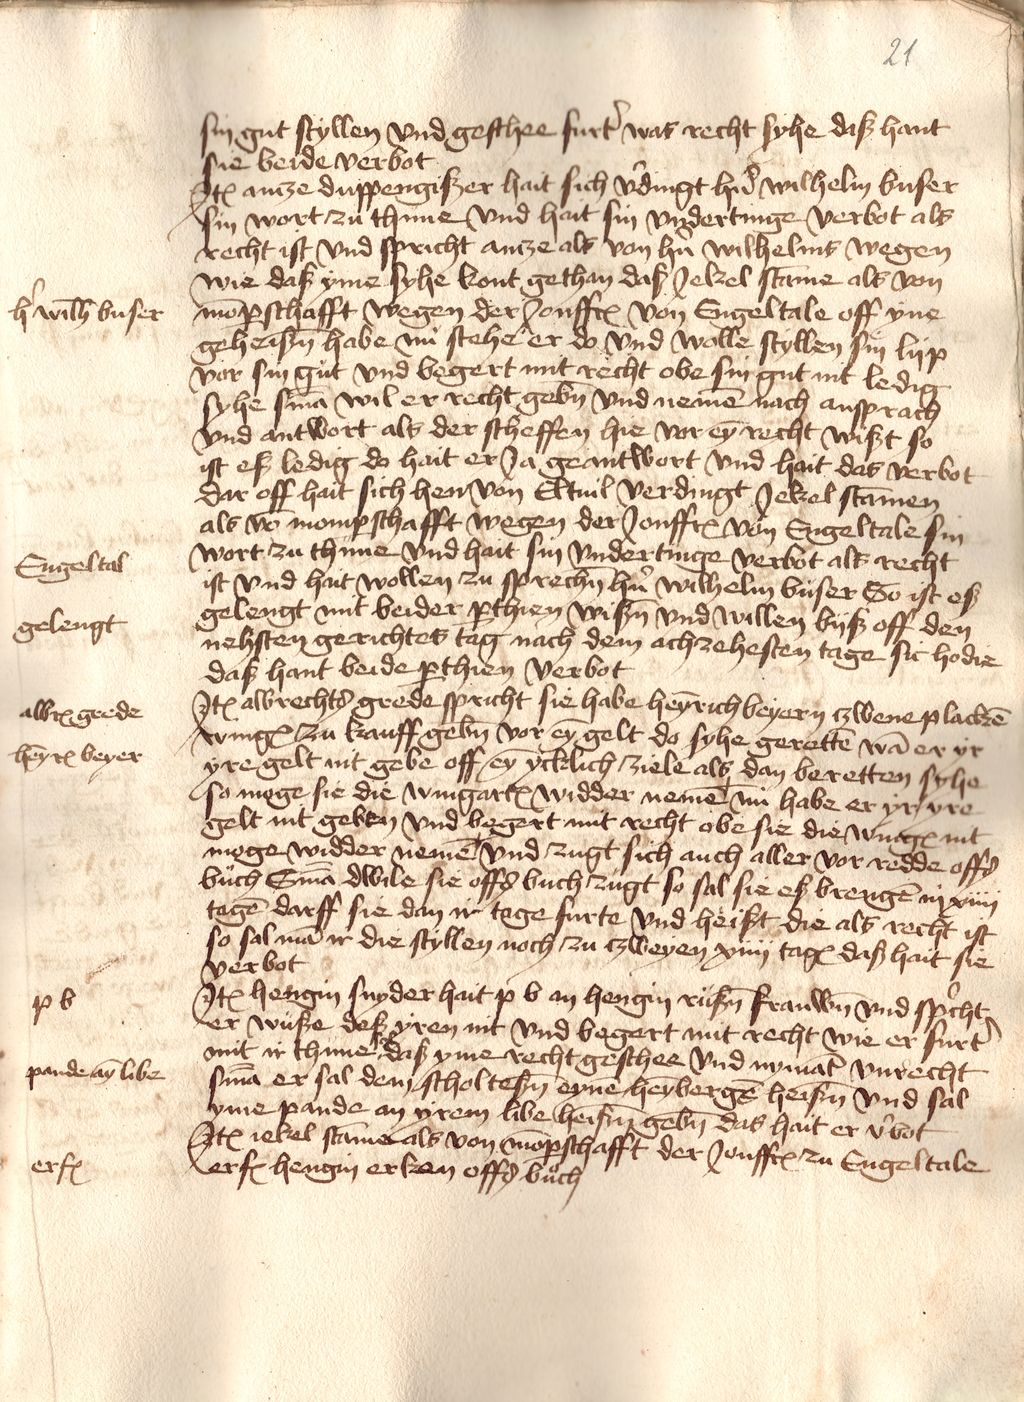 21
sin gut styllen vnd geschee furt' was recht syhe daß hant
sie beide verbot
Itꝫ antze duppengiszer hait sich v'dingt hn̄ wilhelm buser
sin wort zu thune vnd hait sin vndertinge verbot als
recht ist vnd spricht antze als von hn̄ wilhelms wegen
wie daß yme syhe kont gethan daß Jekel stām̄e als von
h' wilh̄ buser
mōp̱schafft wegen der Jonffrꝫ von Engeltale off yne
geheisn̄ habe nů stehe er do vnd wolle styllen sin lijp
vor sin gut vnd begert mit recht obe sin gut nit ledig
syhe sm̄a wil er recht gebn̄ vnd nemē nach ansprach
vnd antwort als der scheffen hie vor eȳ recht wißt so
ist eß ledig do hait er Ja geantwort vnd hait das verbot
dar off hait sich hen von Eltuil verdingt Jekel stām̄en
als vō momp̱schafft wegen der Jonffrꝫ von Engeltale sin
Engeltal
wort zu thune vnd hait sin vndertinge verbot als recht
ist vnd hait wollen zu sprechn̄ hn̄ wilhelm buser So ist eß
gelengt
gelengt mit beider p̱thien wißn̄ vnd willen byß off den
nehsten gerichtes tag nach dem achzehesten tage sic hodie
daß hant beide p̱thien verbot
albrꝫ grede
Itꝫ albrechtꝭ grede spricht sie habe heȳrich beyern czwene plackē
heȳrꝫ beyer
wingꝫ zu kauff gebn̄ vor eȳ gelt do syhe gerettē wā er yr
yre gelt nit gebe off eȳ ycklich ziele als dan beretten syhe
so moge sie die wingartꝫ widder nemē nů habe er yr yre
gelt nit geben vnd begert mit recht obe sie die wingꝫ nit
moge widder nemē vnd zugt sich auch aller vor redde offꝭ
buch Sm̄a dwile sie offꝭ buch zugt so sal sie eß brengē in xiiij
tagē darff sie dan ir tage furte vnd heißt die als recht ist
so sal mā ir die styllen noch zu czweyen xiiij tagꝫ daß hait sie
verbot
p b
Itꝫ hengin snyder hait p b an hengin rußn̄ frauwn̄ vnd sp'cht
er wuße deß yren nit vnd begert mit recht wie er furt'
mit ir thune sal daß yme recht geschee vnd nyman̄t vnrecht
pande aȳ libe
sm̄a er sal dem scholtesn̄ eyne heybergē heisn̄ vnd sal
yme pande an yrem libe heisn̄ gebn̄ das hait er v'bot
Itꝫ iekel stām̄e als von mōp̱schafft der Jonffrꝫ zu Engeltale
erfꝫ
erfꝫ hengin erken offꝭ buch